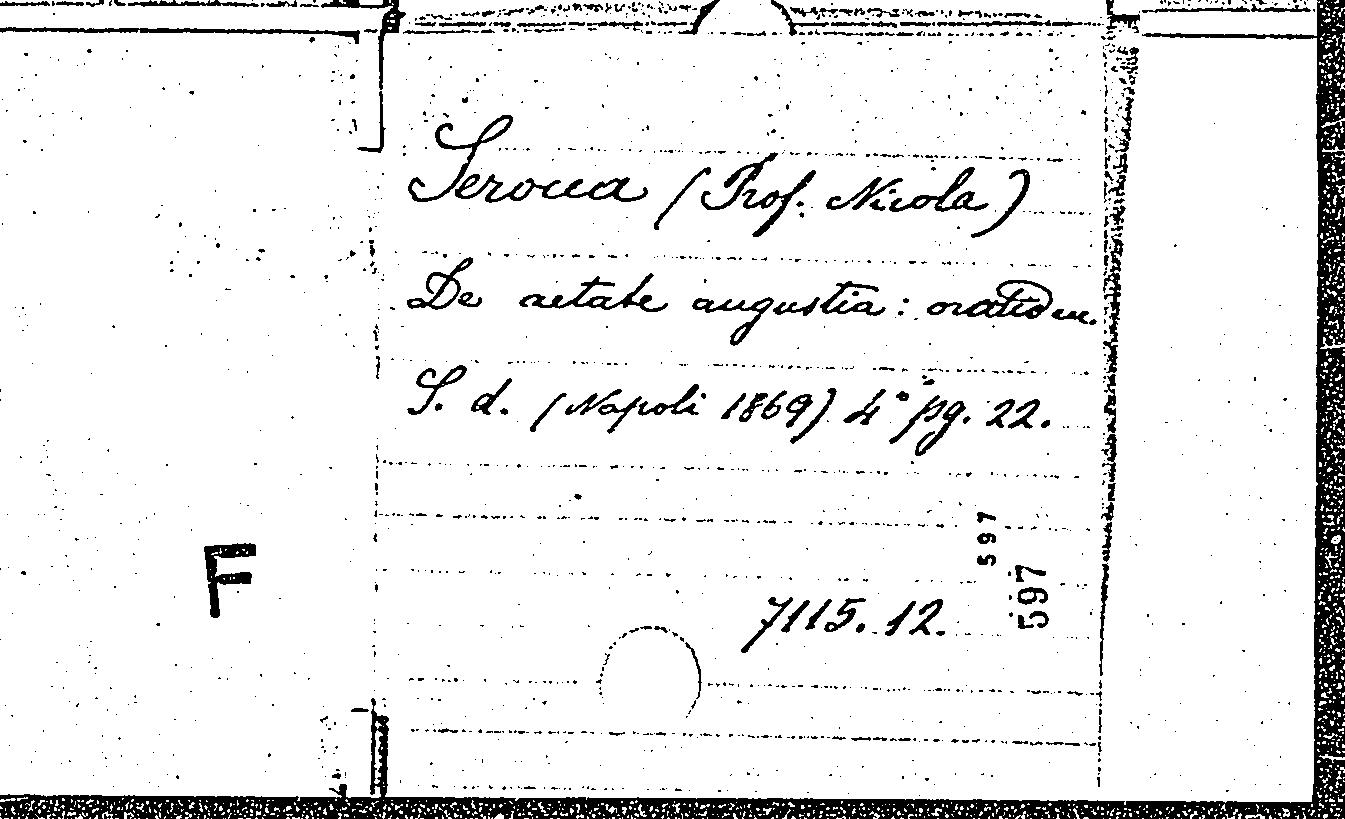 Serocca (Prof. Nicola)
De aetate augustia: oratio
S. d. (Napoli 1869) 4° pg. 22.
F
597
597
7115. 12.